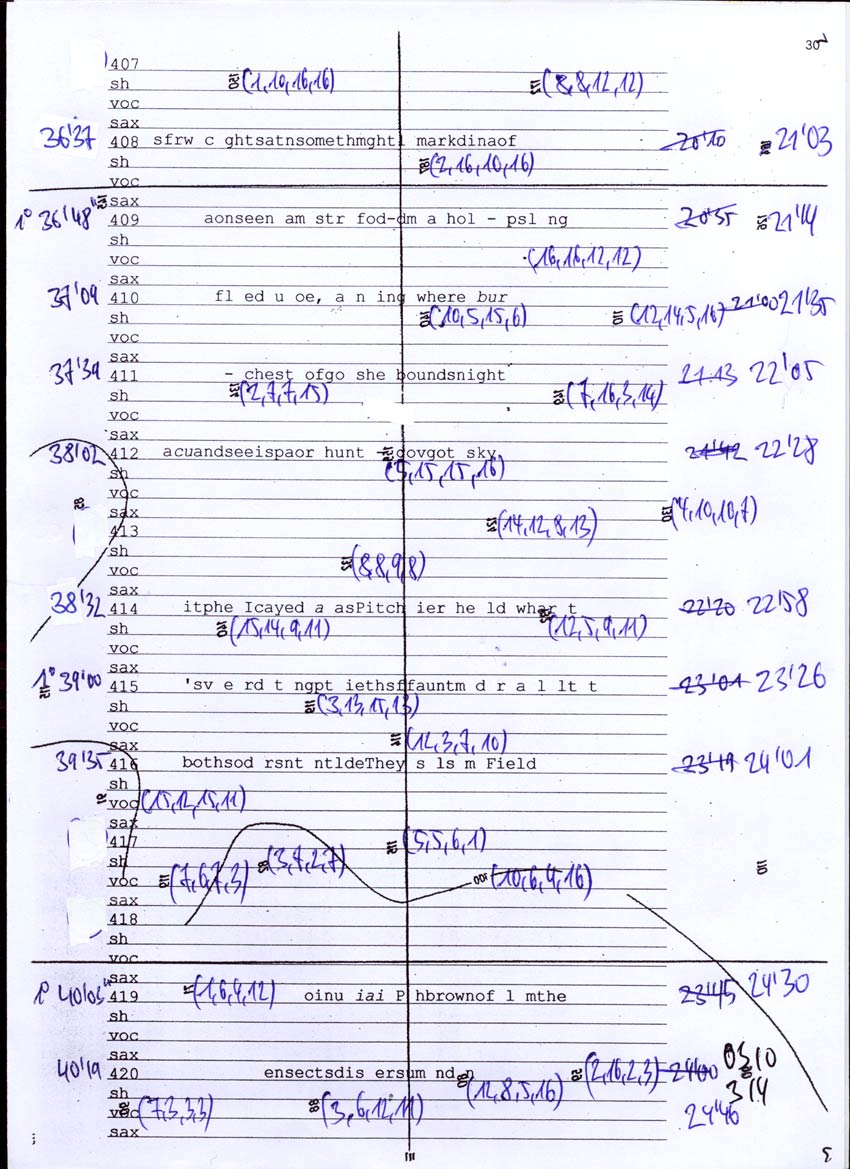 30
407
sh (1,10,16,16) (8,8,12,12)
voc
sax
36'37 408 sfrw c ghtsatnsomethmghtl markdinaof 20'10 21'03
sh (2,16,10,16)
voc
sax
1° 36'48" 409 aonseen am str fod-dm a hol - psl ng 20'35 21'14
sh
voc (16,16,12,12)
sax
37'09 410 fl ed u oe, a n ing where bur 21'00 21'35
sh (10,5,15,6) (12,14,5,16)
voc
sax
37'39 411 - chest ofgo she boundsnight 21'13 22'05
sh (2,7,7,15) (7,16,3,14)
voc
sax
38'02 412 acuandseeispaor hunt - dovgot sky 21'42 22'28
sh (5,15,15,16)
voc
sax (14,12,8,13) (4,10,10,7)
413
sh
voc (8,8,9,8)
sax
38'32 414 itphe Icayed a asPitch ier he ld whar t 22'20 22'58
sh (15,14,9,11) (12,5,9,11)
voc
sax
1° 39'00 415 'sv e rd t ngpt iethsffauntm d r a l lt t 23'01 23'26
sh (3,13,15,13)
voc
sax (12,3,7,10)
39'35 416 bothsod rsnt ntldeThey s ls m Field 23'19 24'01
sh
voc (15,12,15,11)
sax
417 (5,5,6,1)
sh (3,7,2,7)
voc (7,6,7,3) (10,6,4,16)
sax
418
sh
voc
sax
1° 40'03" 419 (1,6,4,12) oinu iai P hbrownof l mthe 23'45 24'30
sh
voc
sax
40'19 420 ensectsdis ersum nd n (2,16,2,3) 24'00 03'10
sh (12,8,5,16) 3'14
voc (7,3,3,3) (3,6,12,11) 24'46
sax